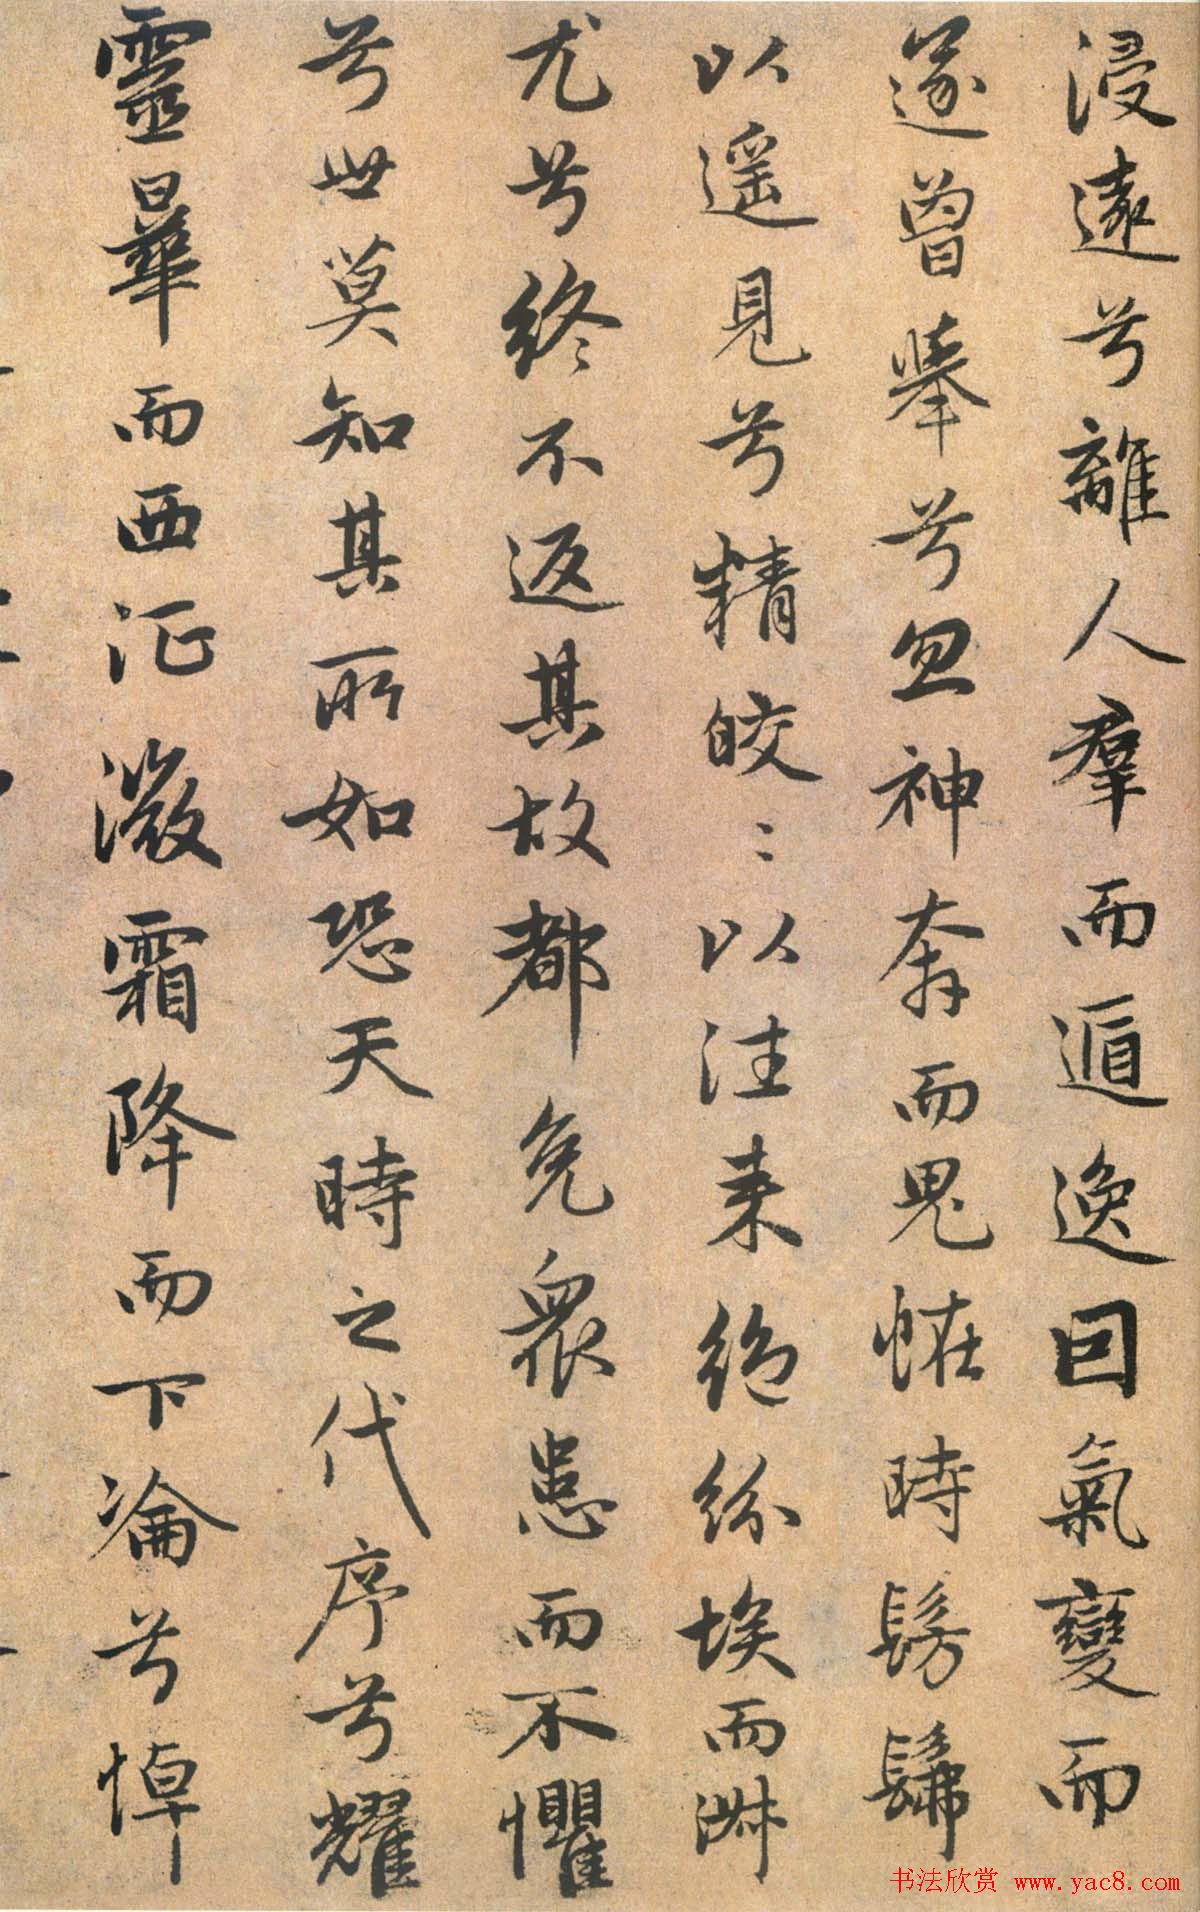 浸遠兮離人羣而遁逸因氣變而
遂曾舉兮忽神奔而鬼怪時髣髴
以遥見兮精皎〻以往来絶紛埃而淋
尤兮終不返其故都免衆患而不懼
兮世莫知其所如恐天時之代序兮耀
靈曅而西征微霜降而下淪兮悼
书法欣赏 www.yac8.com